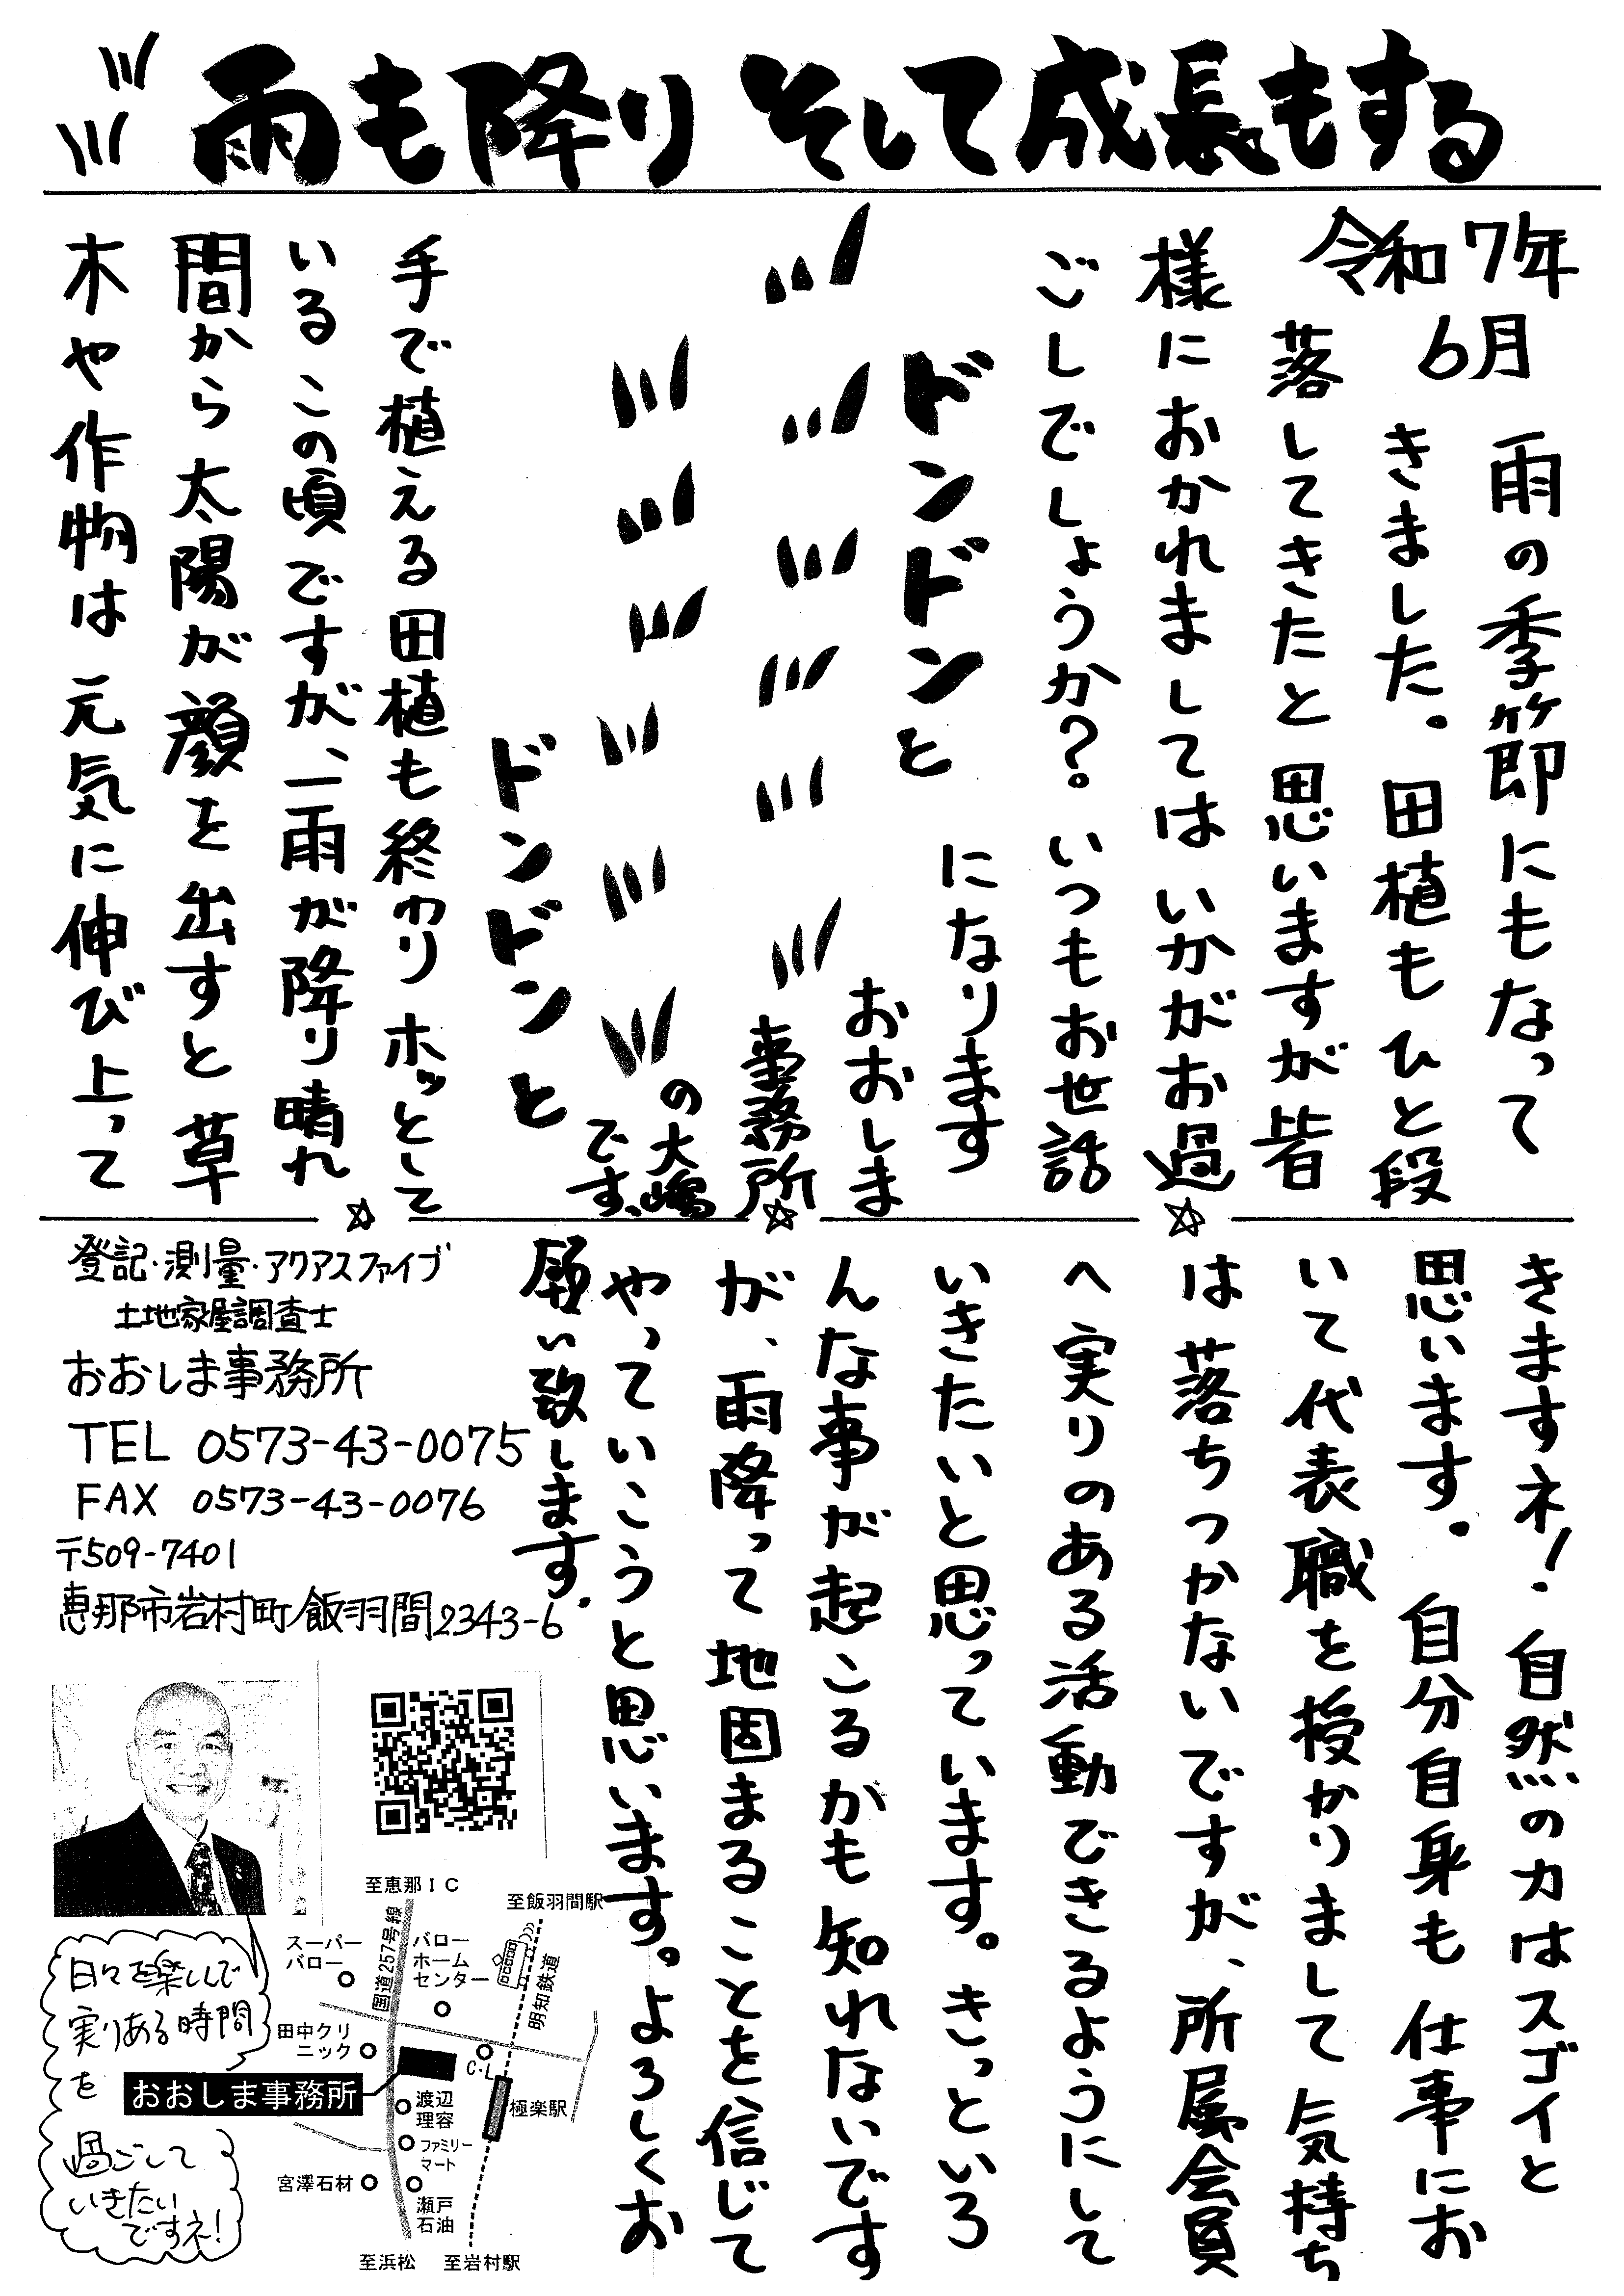 雨も降り そして成長もする
令和7年
6月
雨の季節にもなって
きました。田植もひと段
落してきたと思いますが皆
様におかれましてはいかがお過
ごしでしょうか？。いつもお世話
になります
おおしま
事務所
の大嶋
です。
ドンドンと
ドンドンと
手で植える田植も終わりホッとして
いるこの頃ですが、一雨が降り晴れ
間から太陽が顔を出すと草
木や作物は元気に伸び上って
きますネ！.自然の力はスゴイと
思います。自分自身も仕事にお
いて代表職を授かりまして気持ち
は落ちつかないですが、所属会員
へ実りのある活動できるようにして
いきたいと思っています。きっといろ
んな事が起こるかも知れないです
が、雨降って地固まることを信じて
やっていこうと思います。よろしくお
願い致します.
登記・測量・アクアスファイブ
土地家屋調査士
おおしま事務所
TEL 0573-43-0075
FAX 0573-43-0076
〒509-7401
恵那市岩村町飯羽間2343-6
日々を楽しんで
実りある時間
を
過ごして
いきたい
ですネ！
至恵那IC
至飯羽間駅
スーパー
バロー
国道257号線
バロー
ホーム
センター
明知鉄道
田中クリ
ニック
C・L
おおしま事務所
渡辺
理容
極楽駅
ファミリー
マート
宮澤石材
瀬戸
石油
至浜松
至岩村駅